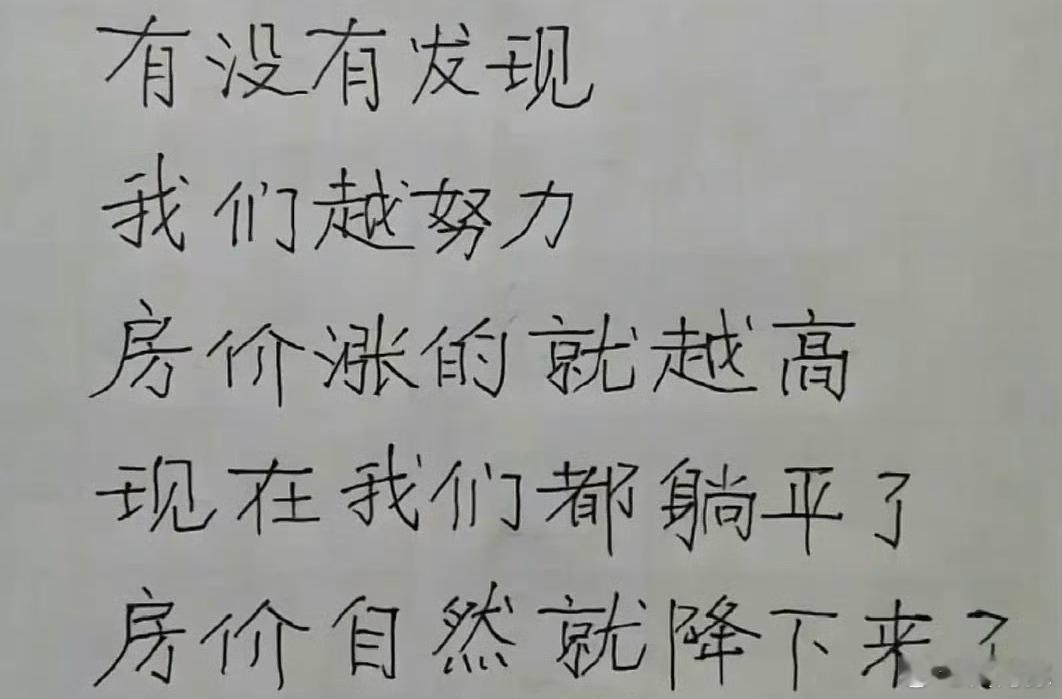 有没有发现
我们越努力
房价涨的就越高
现在我们都躺平了
房价自然就降下来了